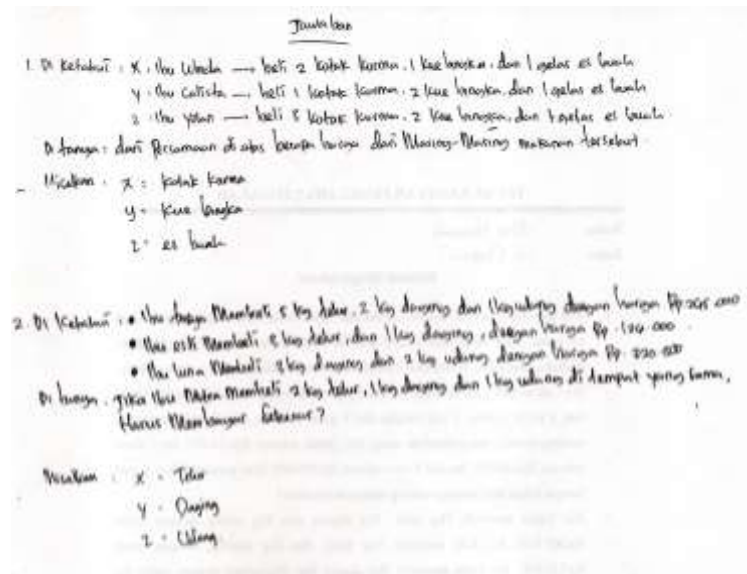 Jawaban
1. Di Ketahui : X . Ibu Winda → beli 2 kotak kurma, 1 kue bangka, dan 1 gelas es buah
Y . Ibu Calista → beli 1 kotak kurma, 2 kue bangka, dan 1 gelas es buah
z . Ibu Yolan → beli 3 kotak kurma, 2 kue bangka, dan 1 gelas es buah.
Di tanya : dari Persamaan di atas berapa harga dari Masing-Masing makanan tersebut.
Misalkan : X = kotak kurma
y = kue bangka
z = es buah
2. Di Ketahui : • Ibu Membeli 5 kg telur, 2 kg daging dan 1 kg udang dengan harga Rp 265.000
• Ibu esti Membeli 3 kg telur, dan 1 kg daging, dengan harga Rp. 126.000.
• Ibu luna Membeli 3 kg daging dan 2 kg udang dengan harga Rp. 320.000
Di tanya . Jika Ibu Membeli 2 kg telur, 1 kg daging dan 1 kg udang di tempat yang sama,
Harus Membayar Sebesar?
Misalkan : X = Telur
y = Daging
z = Udang